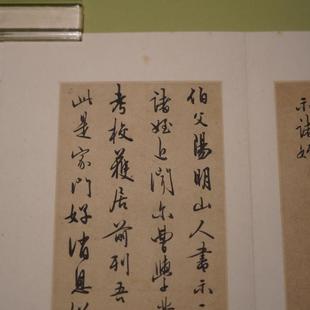 示諸姪
伯父陽明山人書示
諸姪近聞尔曹學業
考校獲居前列吾
此是家門好消息